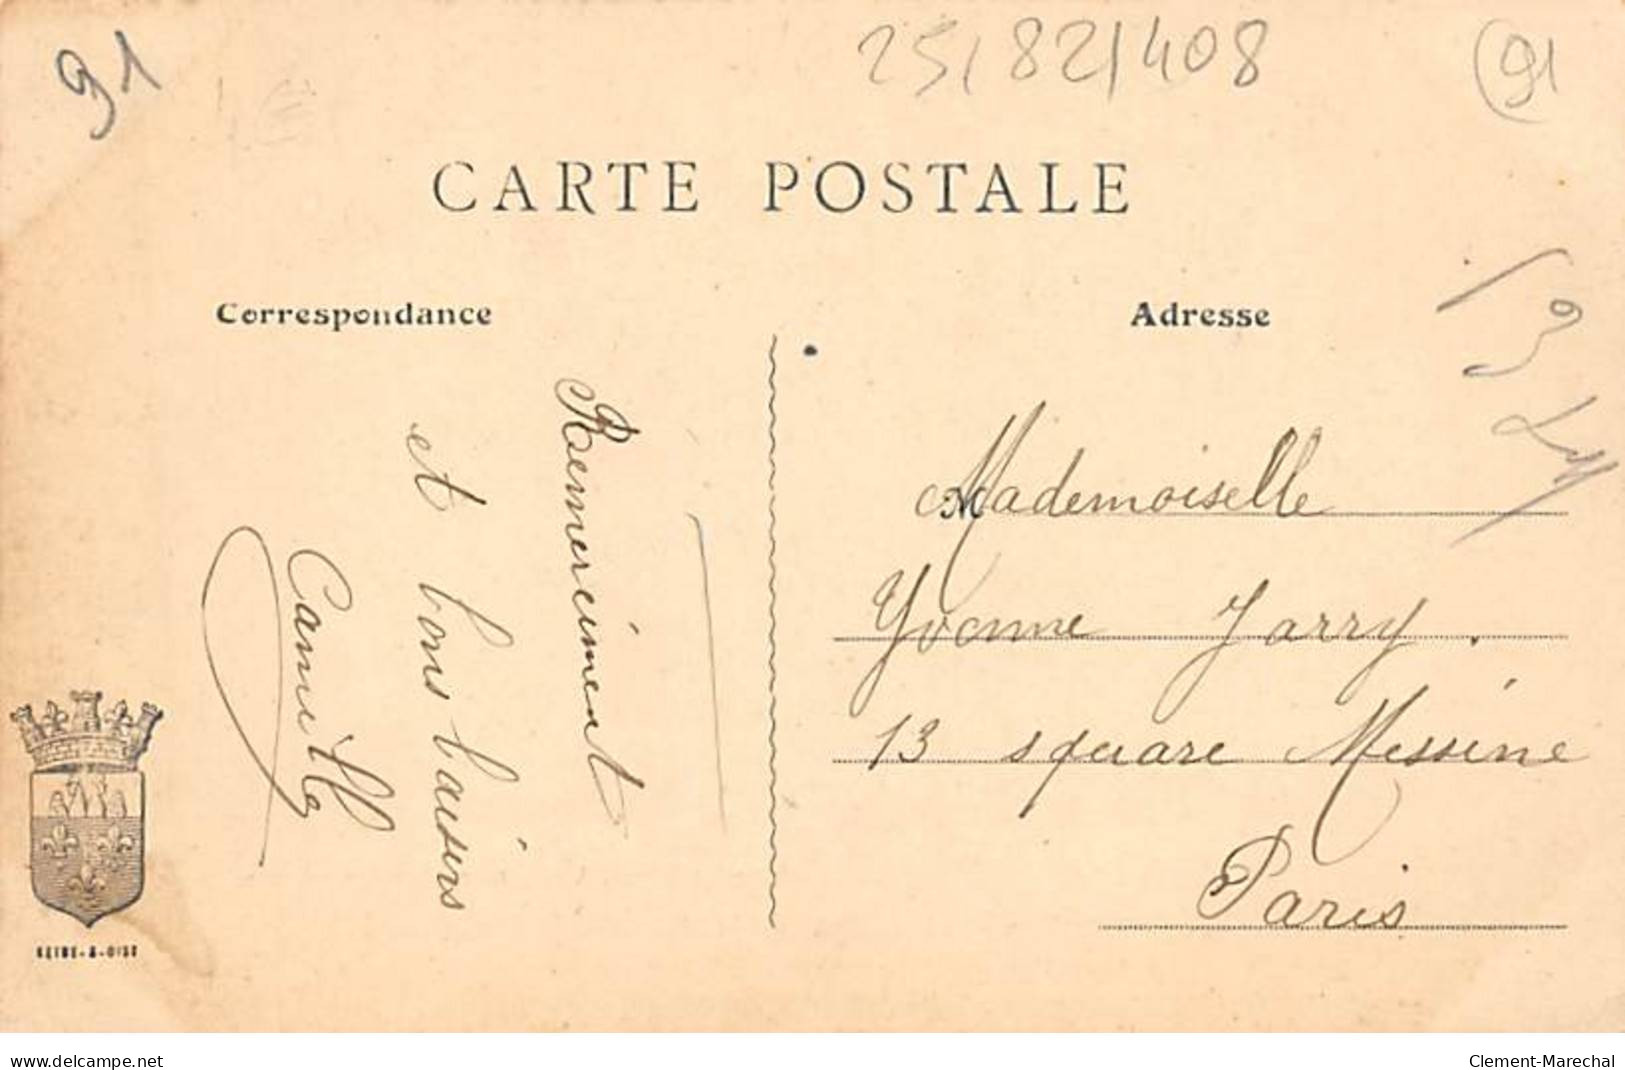 91
25/82/408
91
CARTE POSTALE
Correspondance
Adresse
Remerciment
et bons baisers
Camille
Mademoiselle
Yvonne Jarry.
13 square Messine
Paris
SEINE-&-OISE
www.delcampe.net
Clement-Marechal